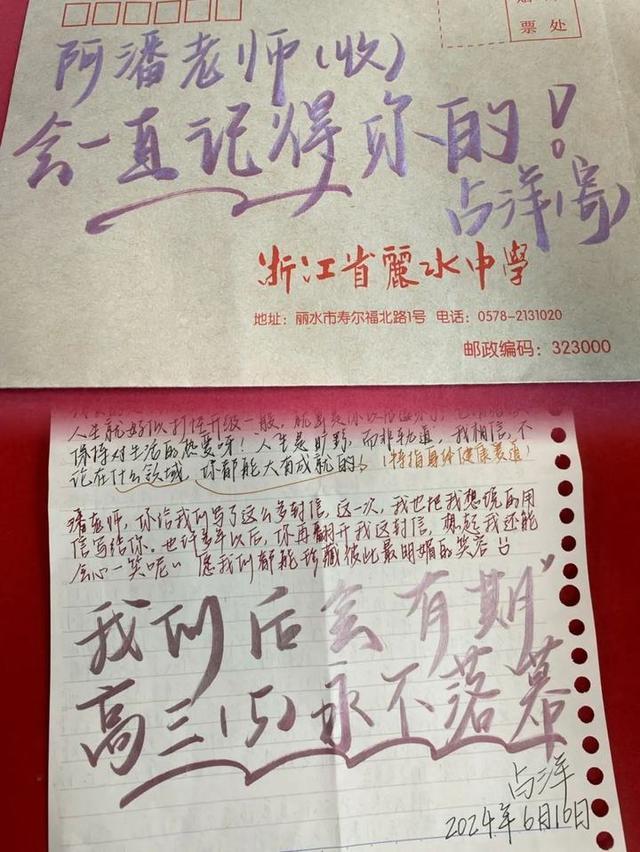 票处
阿潘老师(收)
会一直记得你的!
占洋(寄)
浙江省麗水中學
地址: 丽水市寿尔福北路1号 电话: 0578-2131020
邮政编码: 323000
人生就好似打怪升级一般,
保持对生活的热爱呀!人生是旷野,而非轨道,我相信,不
论在什么领域,你都能大有成就的。(特指身体健康赛道)
潘老师,你给我们写了这么多封信,这一次,我也把我想说的用
信写给你。也许多年以后,你再翻开我这封信,想起我还能
会心一笑呢~愿我们都能珍藏彼此最明媚的笑容
我们后会有期
高三(5)永不落幕
占洋
2024年6月16日